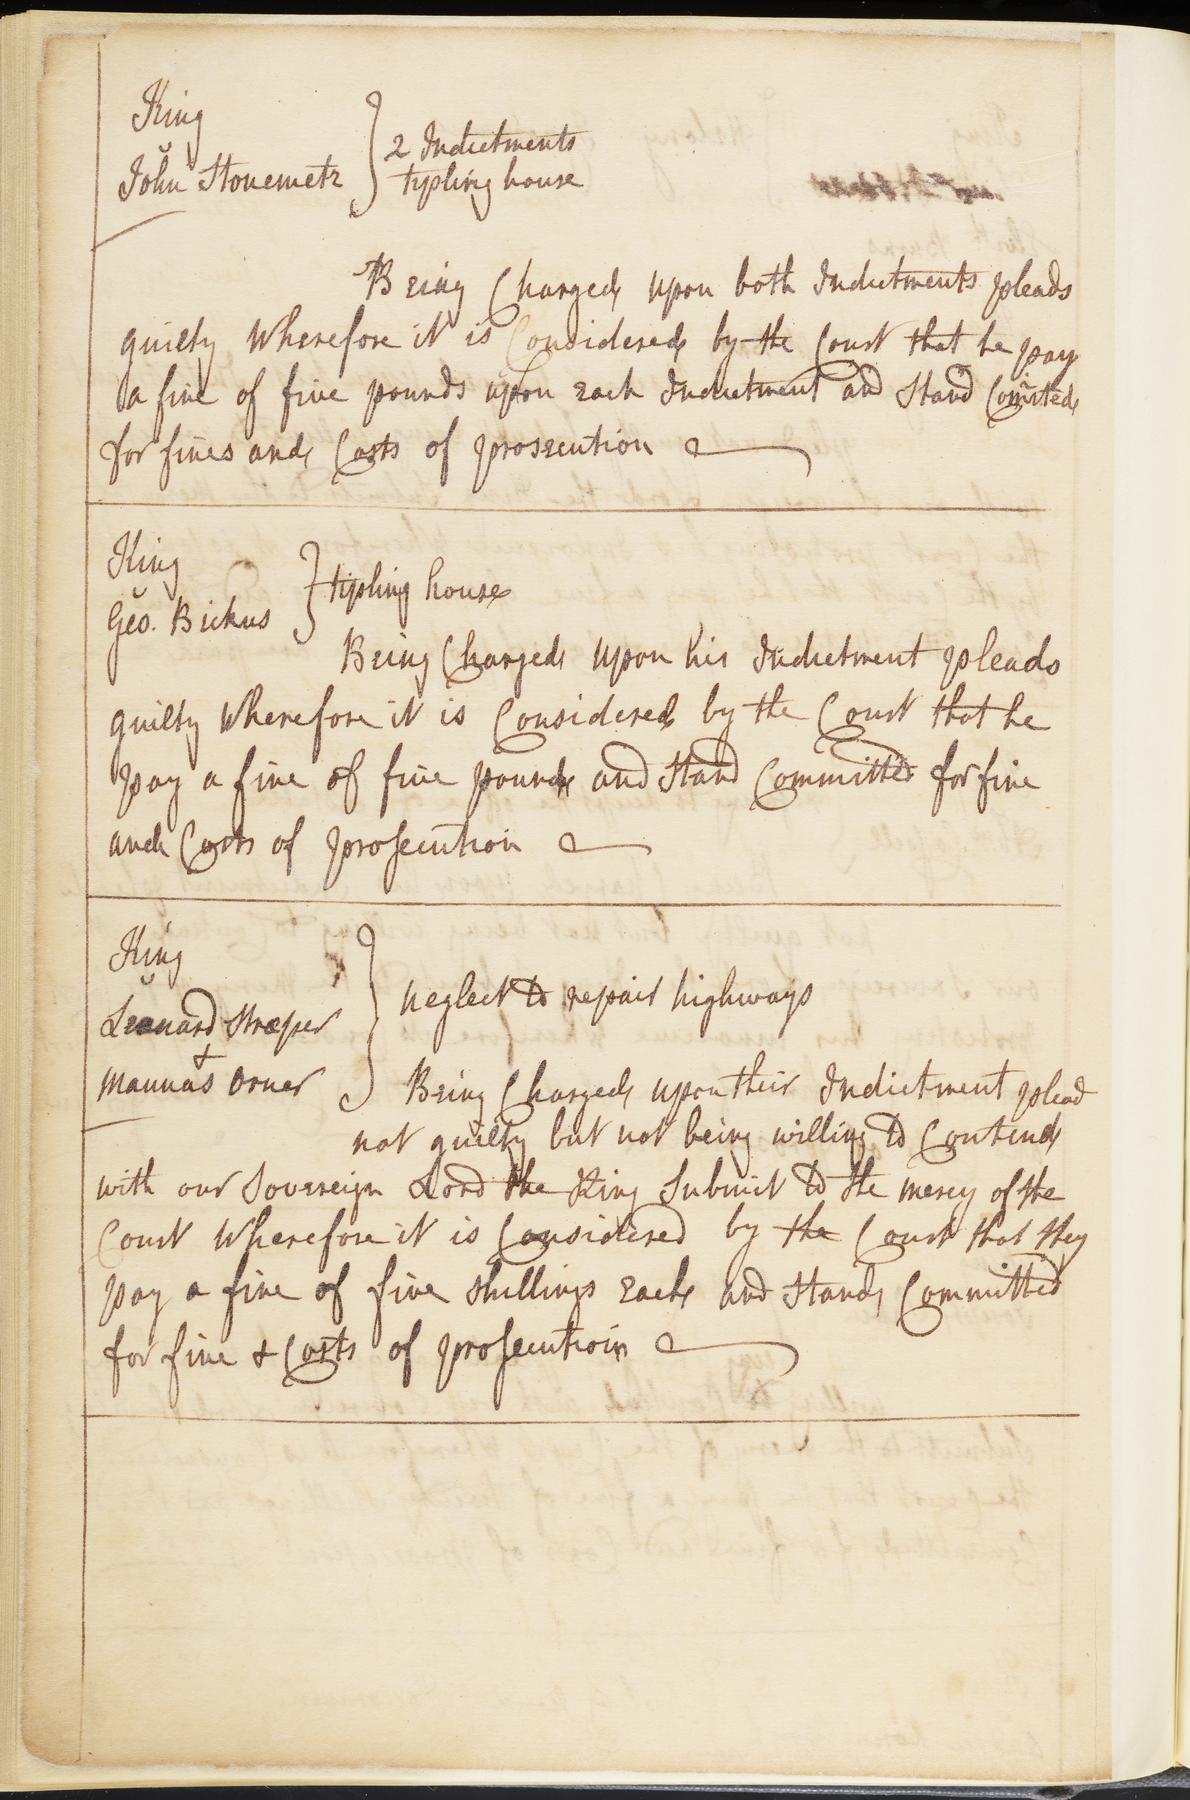 King
v
John Stonemetz } 2 Indictments
tipling house
Being Charged upon both Indictments pleads
guilty Wherefore it is Considered by the Court that he pay
a fine of five pounds upon each Indictment and Stand Com̄ited
for fines and Costs of prosecution
King
v
Geo. Bickus } tipling house
Being Charged upon his Indictment pleads
guilty Wherefore it is Considered by the Court that he
pay a fine of five pounds and Stand Committed for fine
and Costs of prosecution
King
v
Leonard Stroper
&
Mannas Orner } neglect to repair highways
Being Charged upon their Indictment plead
not guilty but not being willing to Contend
with our Sovereign Lord the King Submit to the mercy of the
Court Wherefore it is Considered by the Court that they
pay a fine of five shillings Each and Stand Committed
for fine & Costs of prosecution